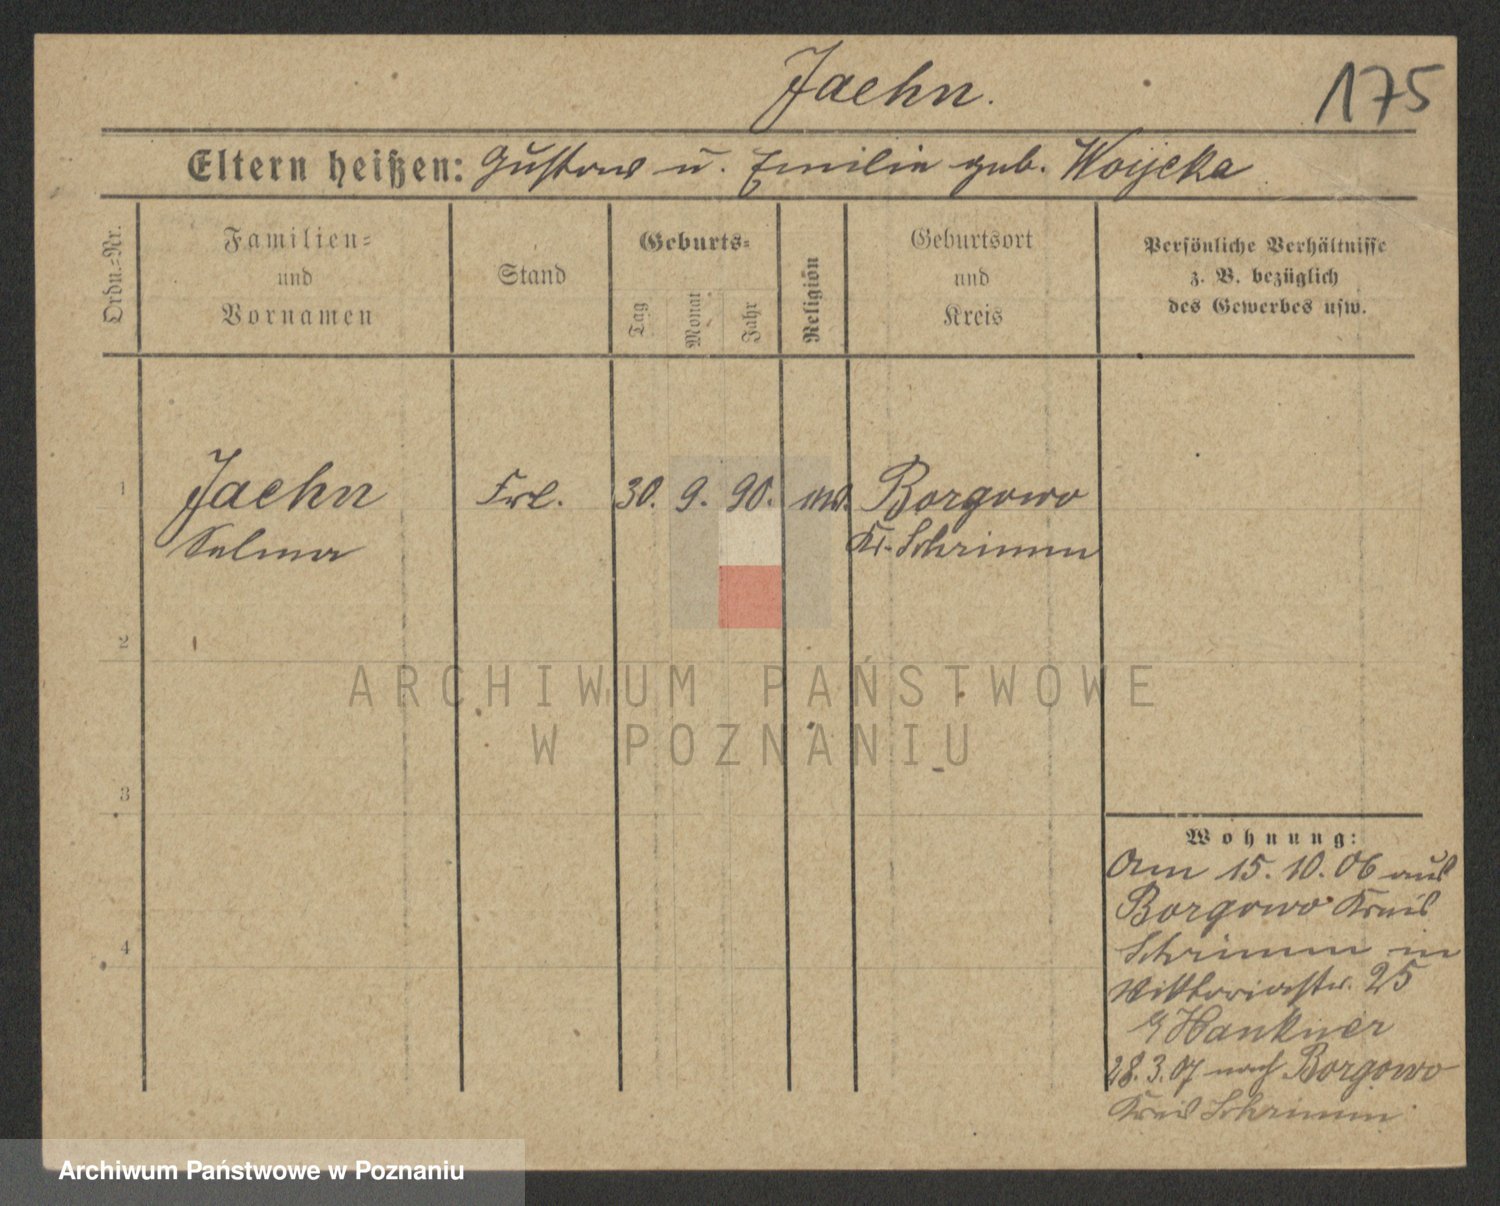 Jaehn.
175
Eltern heißen: Gustav u. Emilie geb. Woijcka
Ordn.-Nr.
Familien-
und
Vornamen
Stand
Geburts-
Tag
Monat
Jahr
Religion
Geburtsort
und
Kreis
Persönliche Verhältnisse
z. B. bezüglich
des Gewerbes usw.
1
Jaehn
Selma
Frl.
30. 9. 90.
Borgowo
Kr. Schrimm
2
3
4
ARCHIWUM PAŃSTWOWE
W POZNANIU
Wohnung:
Am 15.10.06 aus
Borgowo Kreis
Schrimm in
Viktoriastr. 25
Hankner
28.3.07 nach Borgowo
Kreis Schrimm
Archiwum Państwowe w Poznaniu